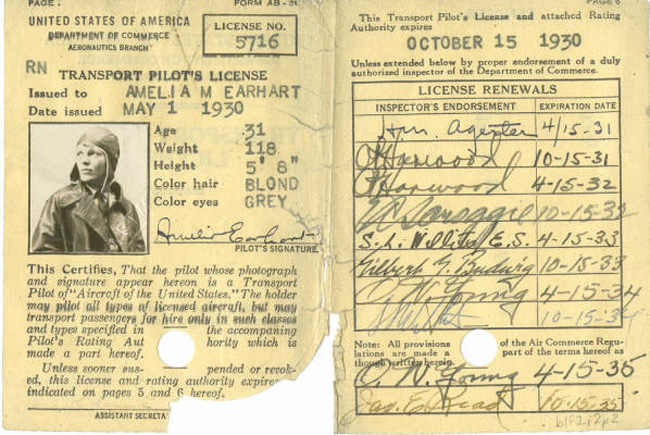 PAGE
FORM AB-
UNITED STATES OF AMERICA
DEPARTMENT OF COMMERCE
AERONAUTICS BRANCH
LICENSE NO.
5716
RN
TRANSPORT PILOT'S LICENSE
Issued to AMELIA M EARHART
Date issued MAY 1 1930
Age 31
Weight 118
Height 5' 8"
Color hair BLOND
Color eyes GREY
Amelia Earhart
PILOT'S SIGNATURE.
This Certifies, That the pilot whose photograph
and signature appear hereon is a Transport
Pilot of "Aircraft of the United States." The holder
may pilot all types of licensed aircraft, but may
transport passengers for hire only in such classes
and types specified in the accompaning
Pilot's Rating Aut hority which is
made a part hereof.
Unless sooner sus pended or revok-
ed, this license and rating authority expires
indicated on pages 5 and 6 hereof.
ASSISTANT SECRETA
PAGE
This Transport Pilot's License and attached Rating
Authority expires
OCTOBER 15 1930
Unless extended below by proper endorsement of a duly
authorized inspector of the Department of Commerce.
LICENSE RENEWALS
INSPECTOR'S ENDORSEMENT EXPIRATION DATE
4/15-31
Harwood 10-15-31
Harwood 4-15-32
Scroggie 10-15-32
S. L. Willits E.S. 4-15-33
Gilbert G. Budwig 10-15-33
C. W. Young 4-15-34
10-15-34
Note: All provisions of the Air Commerce Regu-
lations are made a part of the terms hereof as
though written herein.
C. W. Young 4-15-35
Jas. E. Read 10-15-35
b1f2i2p2